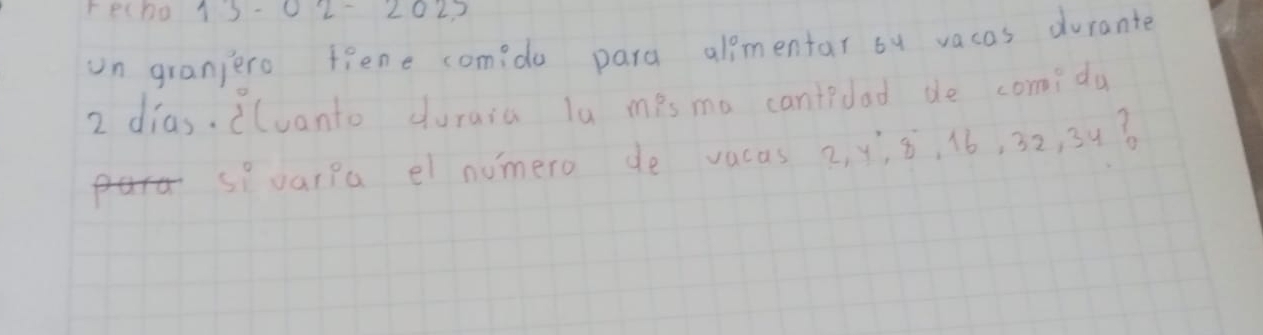 Fecha 13-02-2025
un granjero tiene comida para alimentar 64 vacas durante
2 días. ¿Cuanto durara la misma cantidad de comida
para si varia el número de vacas 2, 4, 8, 16, 32, 34?